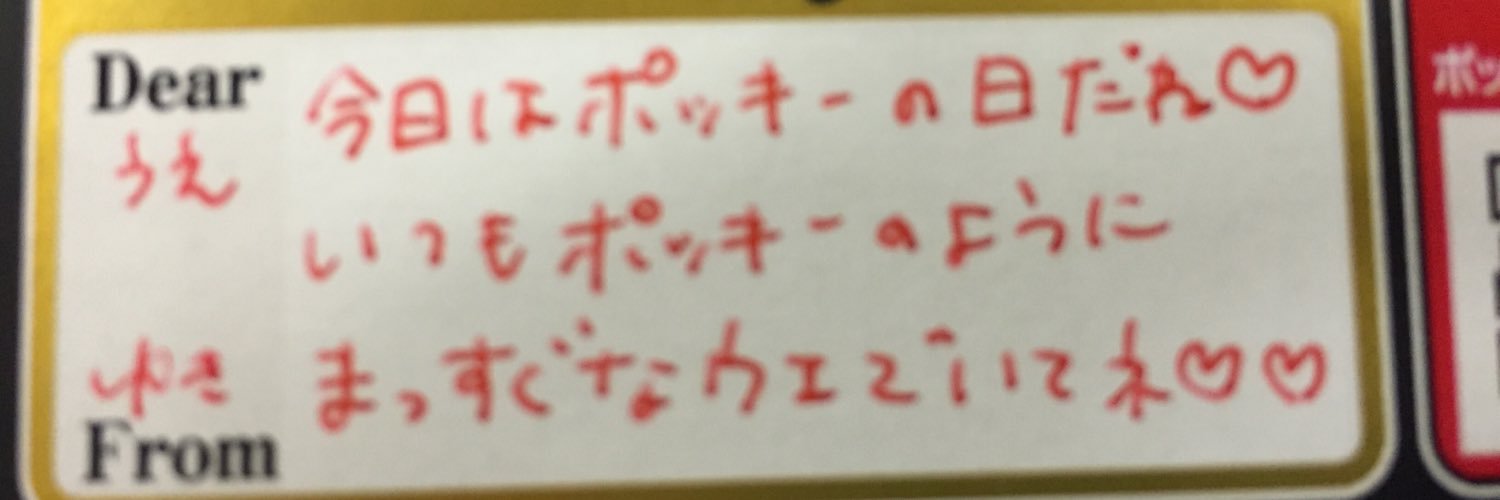 Dear
うえ
今日はポッキーの日だね♡
いつもポッキーのように
まっすぐなウエでいてネ♡♡
ゆき
From
ポッ